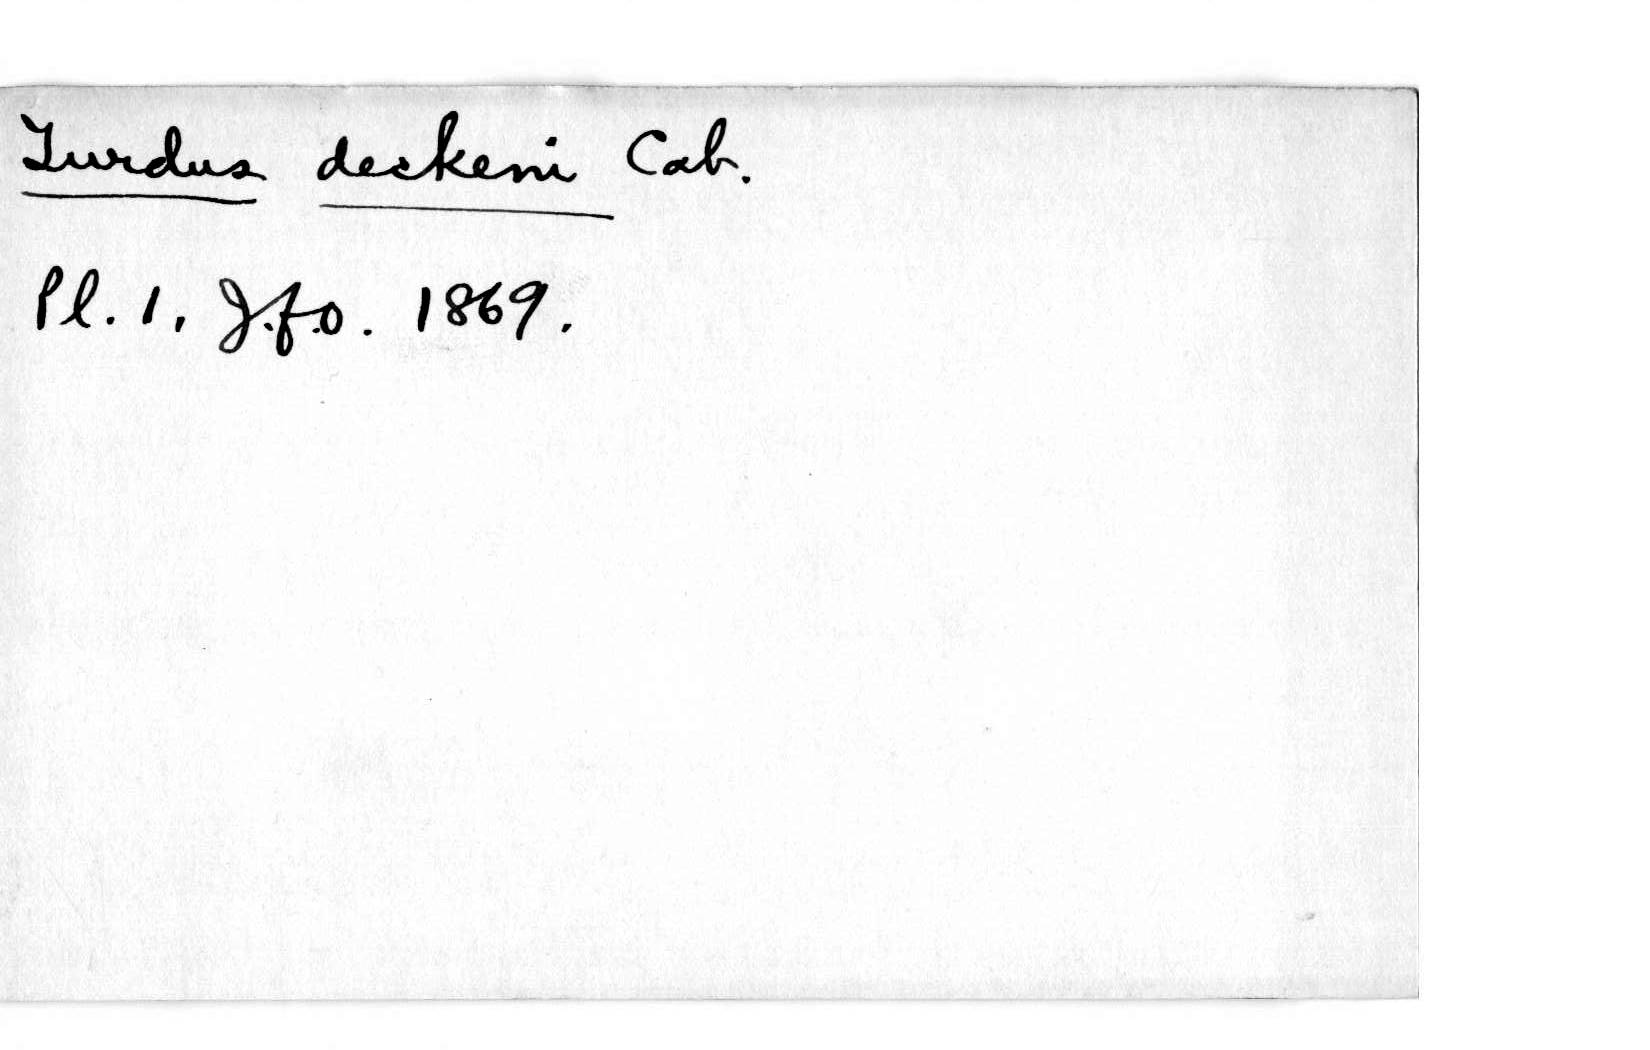 Turdus deckeni Cab.
Pl. 1, J.f.o. 1869.